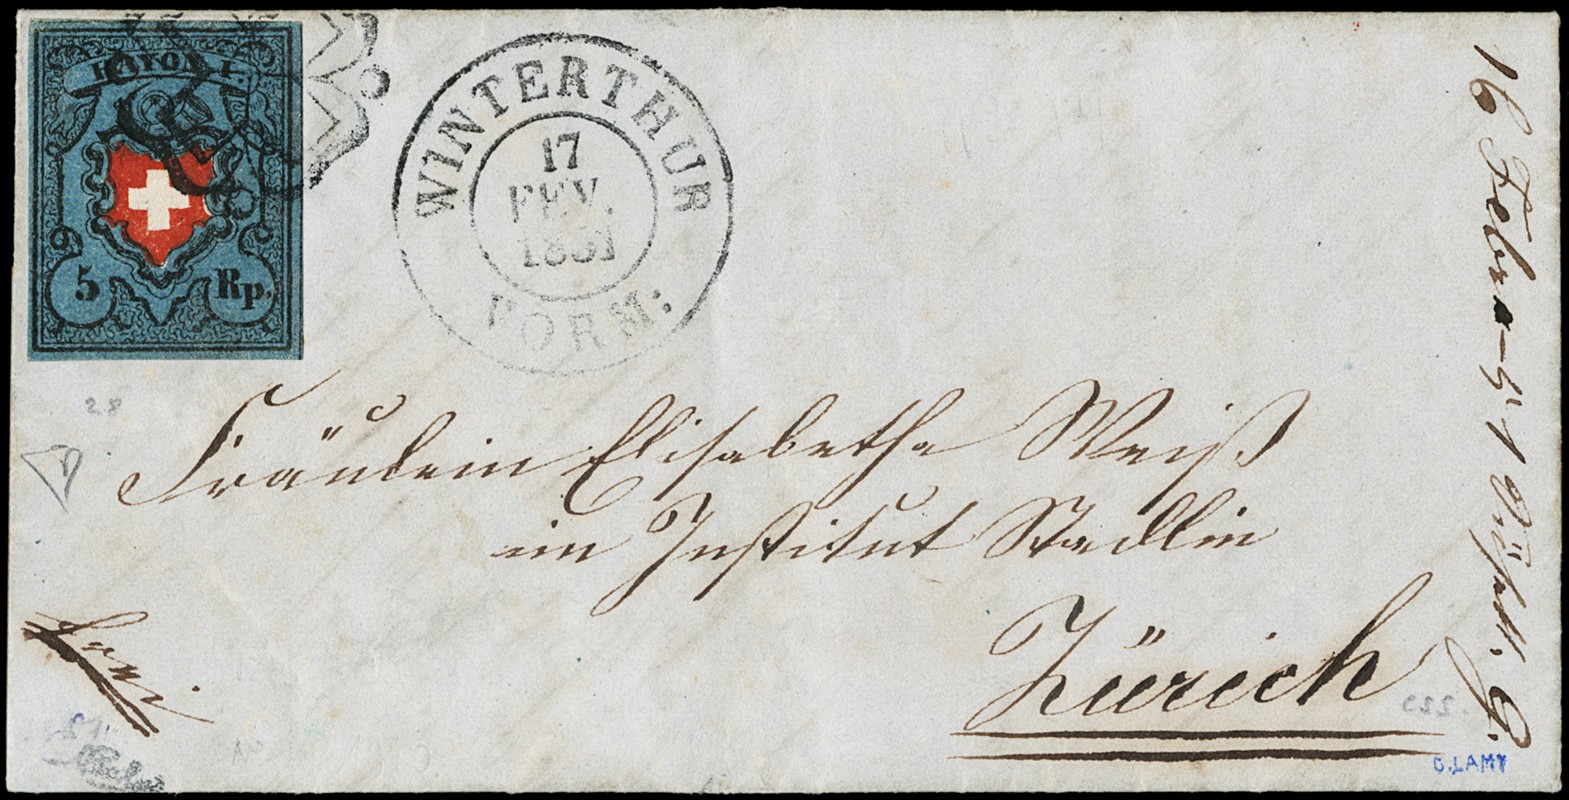 RAYON I.
5 Rp.
WINTERTHUR
17
FEV.
1851
VORM:
Fräulein Elisabetha Weiß
im Institut Stadlin
Zürich
frei
16 Febr
28
223
B. LAMY